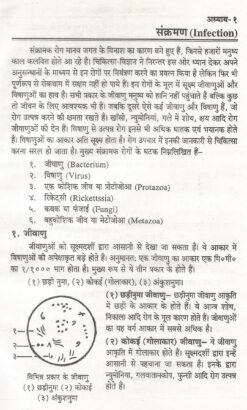 अध्याय-१
संक्रमण (Infection)
संक्रामक रोग मानव जगत के विनाश का कारण बने हुए हैं, जिनसे हजारों मनुष्य
काल कवलित होते आ रहे हैं। चिकित्सा-विज्ञान ने निरन्तर इस ओर ध्यान देकर अपने
अनुसन्धानों के माध्यम से इन रोगों पर नियंत्रण करने का प्रयत्न किया है लेकिन फिर भी
पूर्णरूप से रोकथाम में सक्षम नहीं हो पाये हैं। इन रोगों के मूल में सूक्ष्म जीवाणुओं और
विषाणुओं का हाथ है। सभी प्रकार के जीवाणु मनुष्य को हानि नहीं पहुंचाते हैं बल्कि कुछ
तो जीवन के लिए आवश्यक भी हैं। जबकि दूसरे ऐसे कई जीवाणु और विषाणु हैं, जो
रोग उत्पन्न करने की क्षमता रखते हैं। खाँसी, न्यूमोनिया, गले में शोथ, क्षय आदि रोग
जीवाणुओं की देन हैं। विषाणु से उत्पन्न रोग इनसे भी अधिक घातक एवं भयानक होते
हैं। विषाणुओं का आकार अति सूक्ष्म होता है। रोग उपचार में इनकी जानकारी से चिकित्सा
करना सरल हो जाता है। मुख्य संक्रामक रोगों के घटक निम्नलिखित हैं–
१. जीवाणु (Bacterium)
२. विषाणु (Virus)
३. एक कोशिक जीव या प्रोटोजोआ (Protazoa)
४. रिकेट्सी (Ricketttssia)
५. कवक या फंजाई (Fungi)
६. बहुकोशिक जीव या मेटोजोआ (Metazoa)
१. जीवाणु
जीवाणुओं को सूक्ष्मदर्शी द्वारा आसानी से देखा जा सकता है। ये आकार में
विषाणुओं की अपेक्षाकृत बड़े होते हैं। अनुमानत: एक जीवाणु का आकार एक मि॰मी॰
का १/१००० भाग होता है। मुख्य रूप से ये तीन प्रकार के होते हैं।
(१) छड़ी नुमा, (२) कोकई (गोलाकार), (३) अंकुशनुमा।
(१) छड़ीनुमा जीवाणु– छड़ीनुमा जीवाणु आकृति
में छड़ी के आकार के होते हैं। ये आन्त्र शोथ,
निकाला आदि रोग के मूल कारण होते हैं। जीवाणुओं
का यह वर्ग आकार में सबसे अधिक है।
(२) कोकई (गोलाकार) जीवाणु– ये जीवाणु
आकृति में गोलाकार होते हैं। सूक्ष्मदर्शी द्वारा इन्हें
आसानी से पहचाना जा सकता है। इनके द्वारा
न्यूमोनिया, गलवातालकोप, फुन्सी आदि रोग उत्पन्न
होते हैं।
विभिन्न प्रकार के जीवाणु
(१) छड़ीनुमा (२) कोकई
(३) अंकुशनुमा